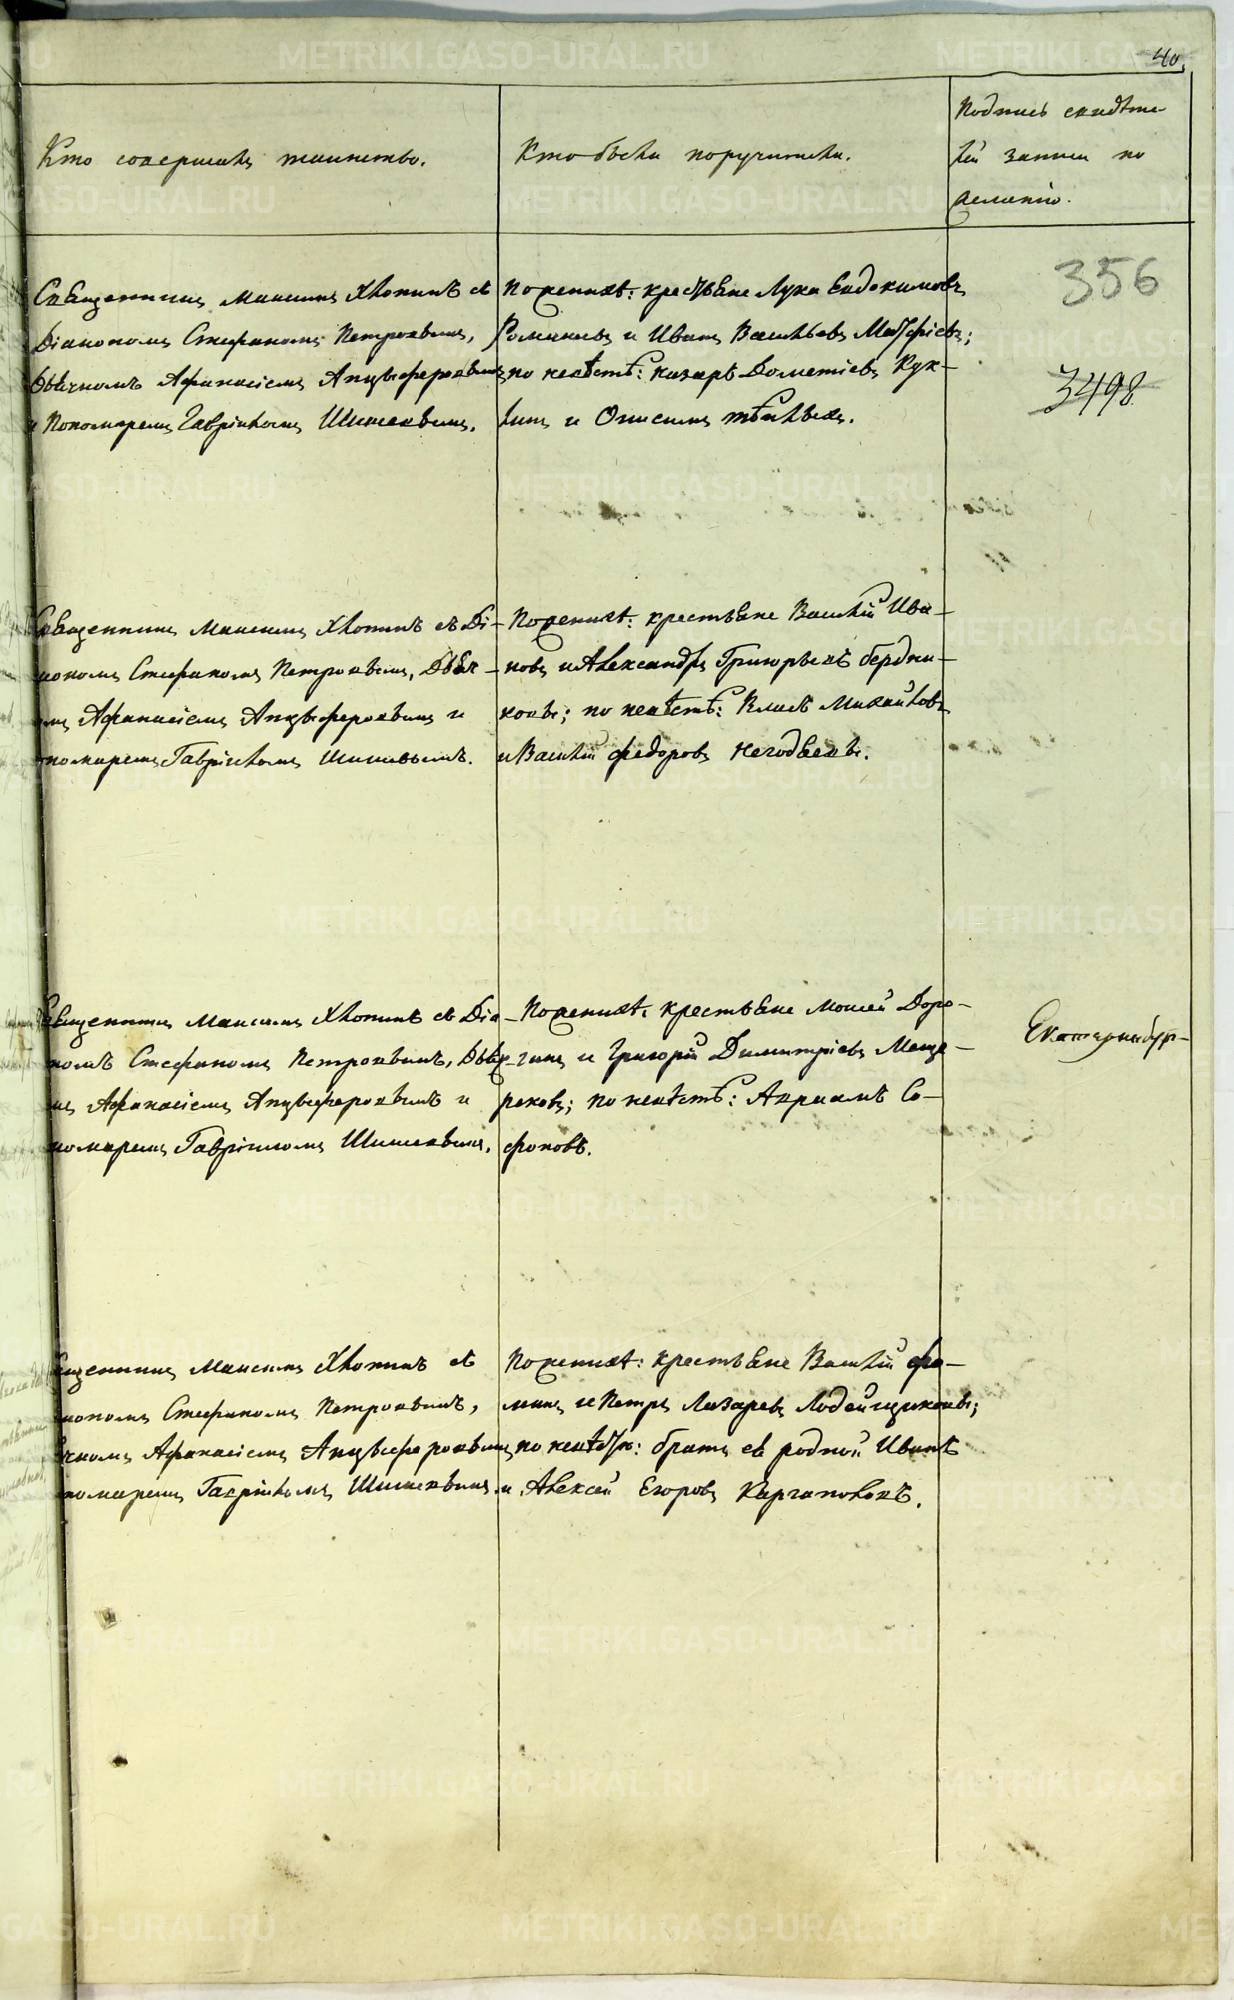 40.
Кто совершалъ таинство.
Кто были поручители.
Подпись свидѣте-
лей записи по
желанію.
356
3498
Священникъ Максимъ Хлопинъ съ
Діакономъ Стефаномъ Петровымъ,
Дьячкомъ Афанасіемъ Анцыферовымъ
и Пономаремъ Гавріиломъ Шишевымъ.
По женихѣ: крестьяне Лука Евдокимовъ
Романовъ и Иванъ Васильевъ Матфіевъ;
по невѣстѣ: Назаръ Дометіевъ Кук-
линъ и Онисимъ
Священникъ Максимъ Хлопинъ съ Ді-
акономъ Стефаномъ Петровымъ, Дьяч-
омъ Афанасіемъ Анцыферовымъ и
пономаремъ Гавріиломъ Шишевымъ.
По женихѣ: крестьяне Василій Ива-
новъ и Александръ Григорьевъ бердни-
ковы; по невѣстѣ: Власъ Михайловъ
и Василій федоровъ Негодяевы.
Священникъ Максимъ Хлопинъ съ Діа-
кономъ Стефаномъ Петровымъ, Дьяч-
мъ Афанасіемъ Анцыферовымъ и
пономаремъ Гавріиломъ Шишевымъ.
По женихѣ: крестьяне Моисей Доро-
гинъ и Григорій Димитріевъ Меще-
рековъ; по невѣстѣ: Авраамъ Со-
фоновъ.
Екатеринбур-
щенникъ Максимъ Хлопинъ съ
акономъ Стефаномъ Петровымъ,
ячкомъ Афанасіемъ Анцыферовымъ
номаремъ Гавріиломъ Шишевымъ.
По женихѣ: крестьяне Василій фо-
минъ и Петръ Лазаревъ Лодейщиковы;
по невѣстѣ: братъ ея родной Иванъ
и Алексей Егоровъ Каргаполовъ.
METRIKI.GASO-URAL.RU